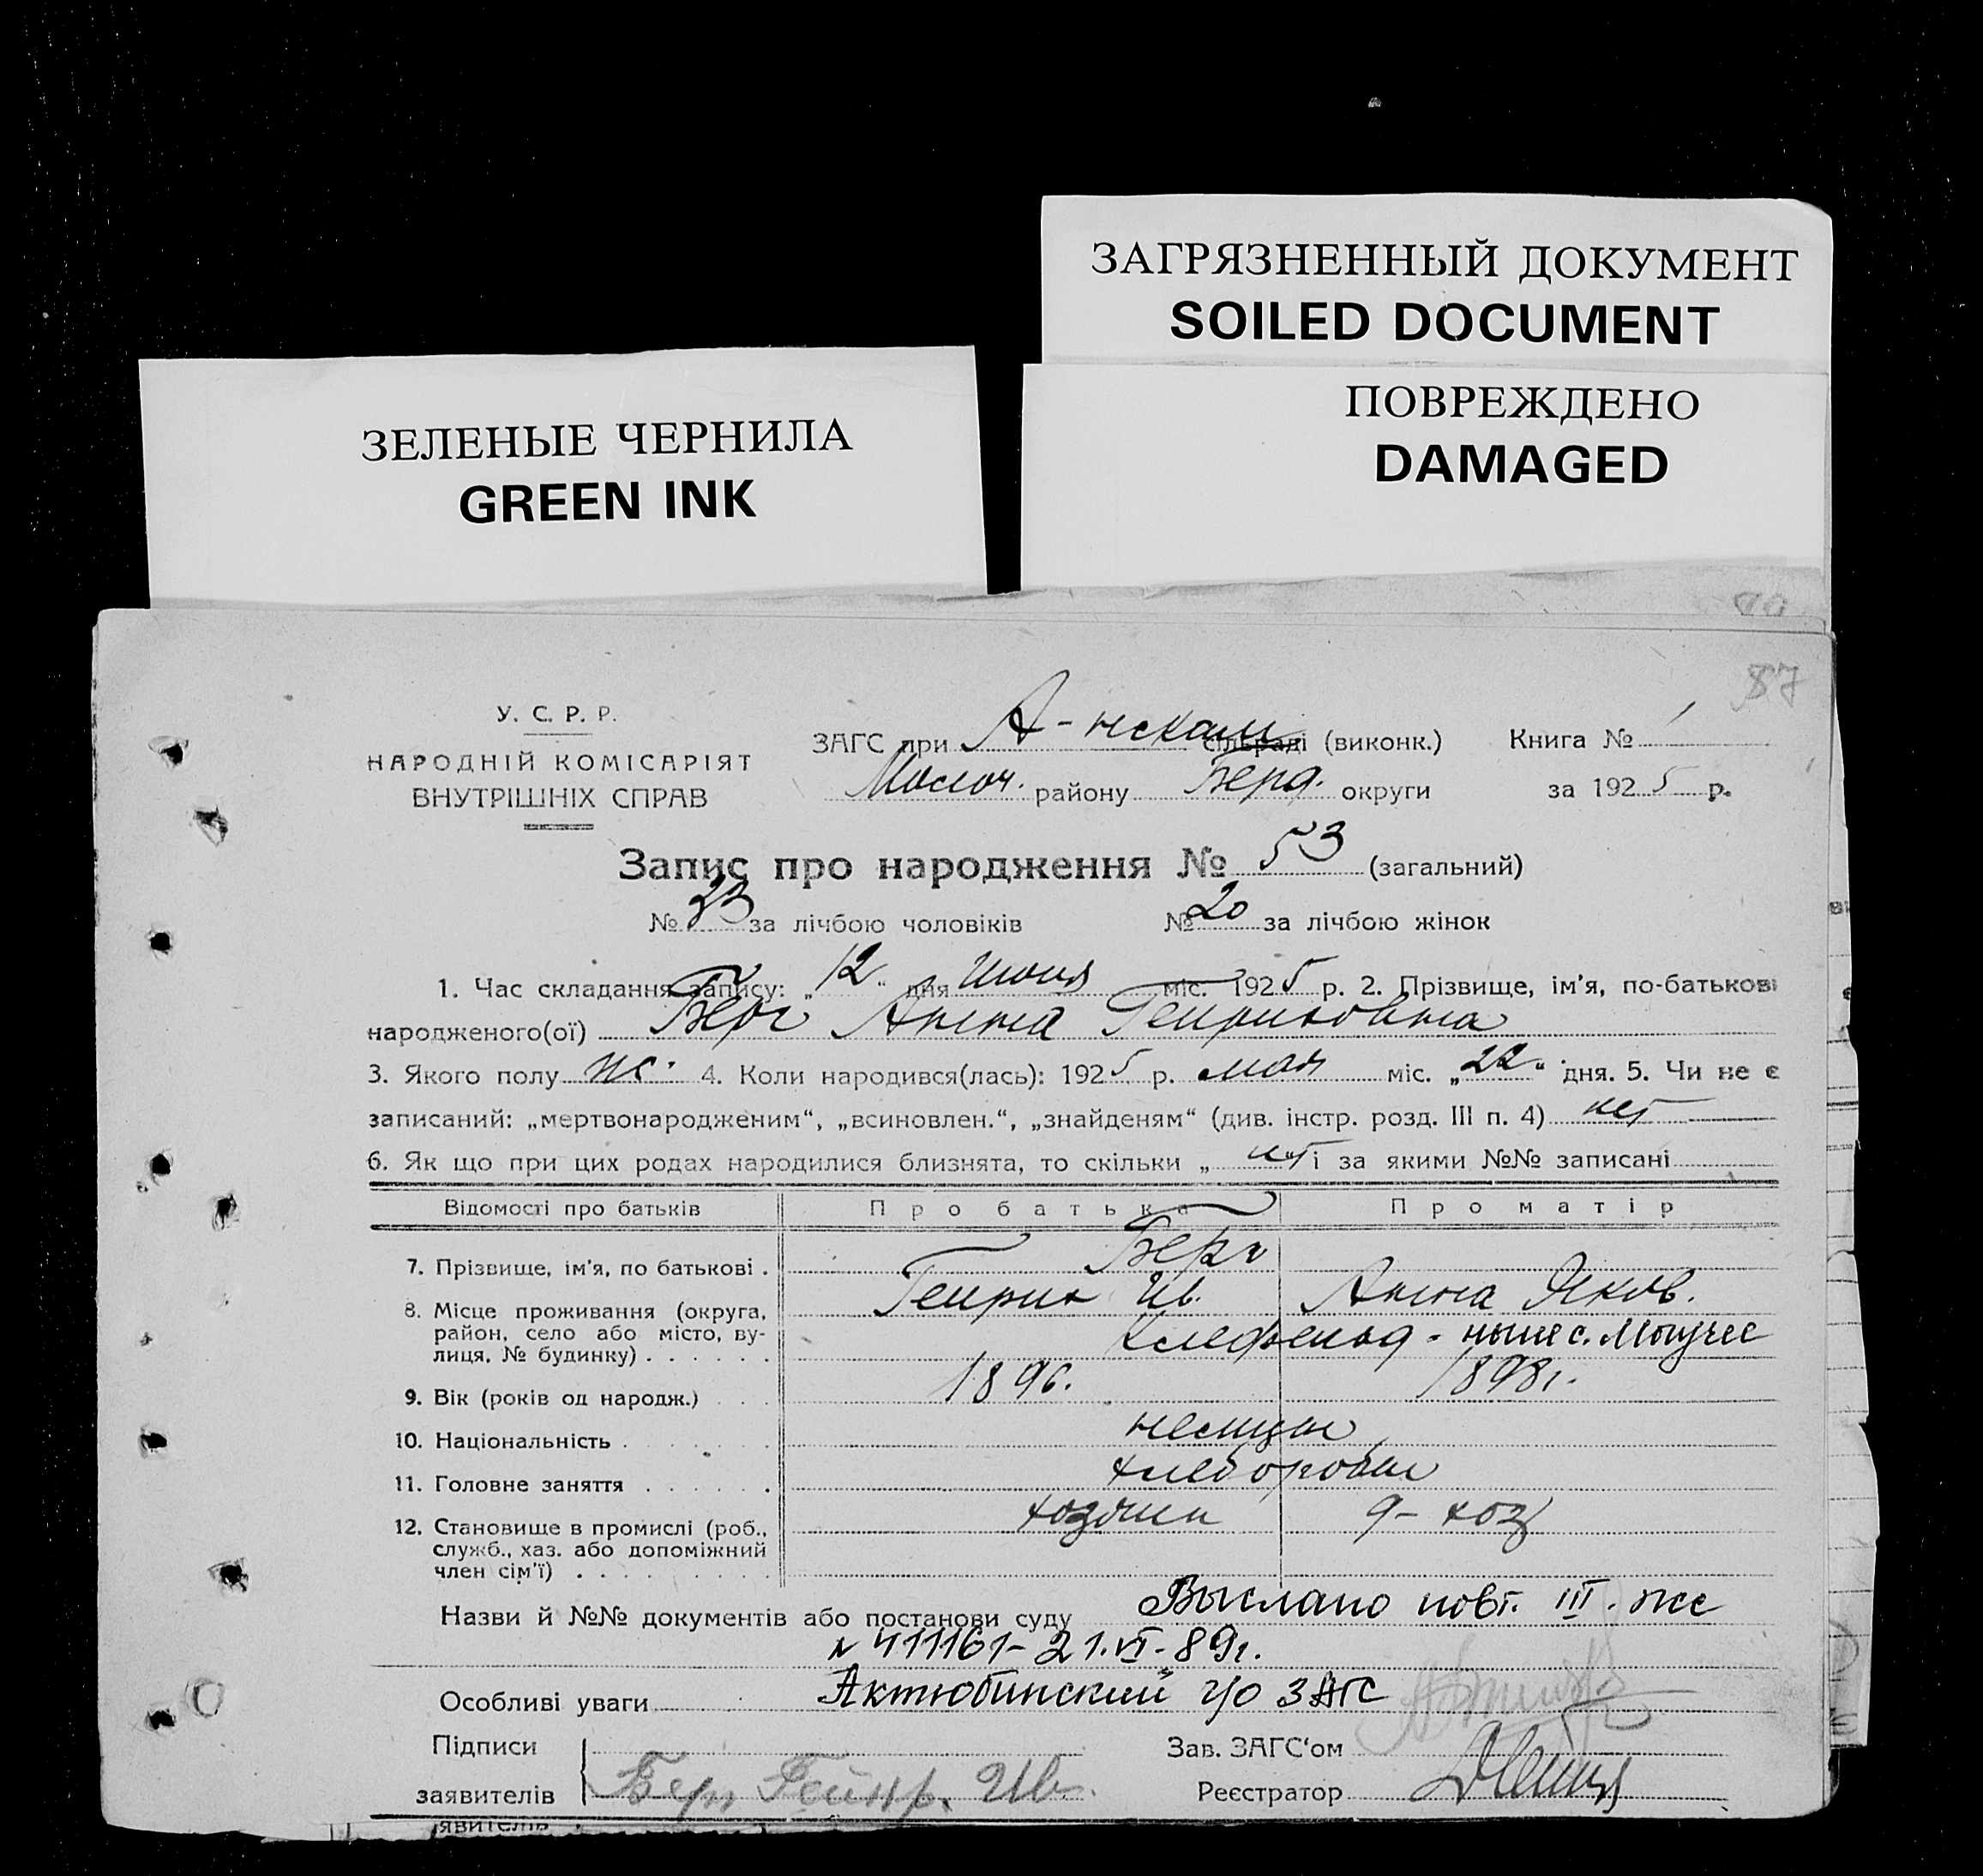 ЗАГРЯЗНЕННЫЙ ДОКУМЕНТ
SOILED DOCUMENT
ПОВРЕЖДЕНО
DAMAGED
ЗЕЛЕНЫЕ ЧЕРНИЛА
GREEN INK
87
У. С. Р. Р.
НАРОДНІЙ КОМІСАРІЯТ
ВНУТРІШНІХ СПРАВ
ЗАГС при А- сільраді (виконк.) Книга № 1
Молоч. району Берд. округи за 1925 р.
Запис про народження № 53 (загальний)
№ 33 за лічбою чоловіків № 20 за лічбою жінок
1. Час складання запису: „12“ дня июня міс. 1925 р. 2. Прізвище, ім'я, по-батькові
народженого(ої) Берг Анна Генриховна
3. Якого полу ж. 4. Коли народився(лась): 1925 р. мая міс. „22“ дня. 5. Чи не є
записаний: „мертвонародженим“, „всиновлен.“, „знайденям“ (див. інстр. розд. III п. 4) нет
6. Як що при цих родах народилися близнята, то скільки „ нет і за якими №№ записані
Відомості про батьків Про батька Про матір
7. Прізвище, ім'я, по батькові . Берг
Генрих Ив. Анна Яков.
8. Місце проживання (округа,
район, село або місто, ву-
лиця. № будинку) . . . . . . ныне с.
9. Вік (років од народж.) . . . 1896. 1898г.
10. Національність . немцы
11. Головне заняття . . . . . . хлеборобы
12. Становище в промислі (роб.,
служб., хаз. або допоміжний
член сім'ї) . . . . . . . . . хозяин д- хоз
Назви й №№ документів або постанови суду Выслано повт. III. же
№ 411161- 21.VI-89г.
Особливі уваги Актюбинский г/о ЗАГС
Підписи
заявителів Берг Гейнр. Ив.
Зав. ЗАГС‘ом
Реєстратор
явителів